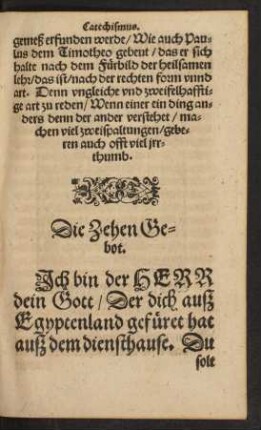 Catechismus.
gemeß erfunden werde/ Wie auch Pau-
lus dem Timotheo gebeut/ das er sich
halte nach dem Fürbild der heilsamen
lehr/ das ist/ nach der rechten form vnnd
art. Denn vngleiche vnd zweifelhaffti-
ge art zu reden/ Wenn einer ein ding an-
ders denn der ander verstehet/ ma-
chen viel zweispaltungen/ gebe-
ren auch offt viel jrr-
thumb.
Die Zehen Ge-
bot.
Ich bin der HERR
dein Gott/ Der dich auß
Egyptenland gefüret hat
auß dem diensthause. Du
solt